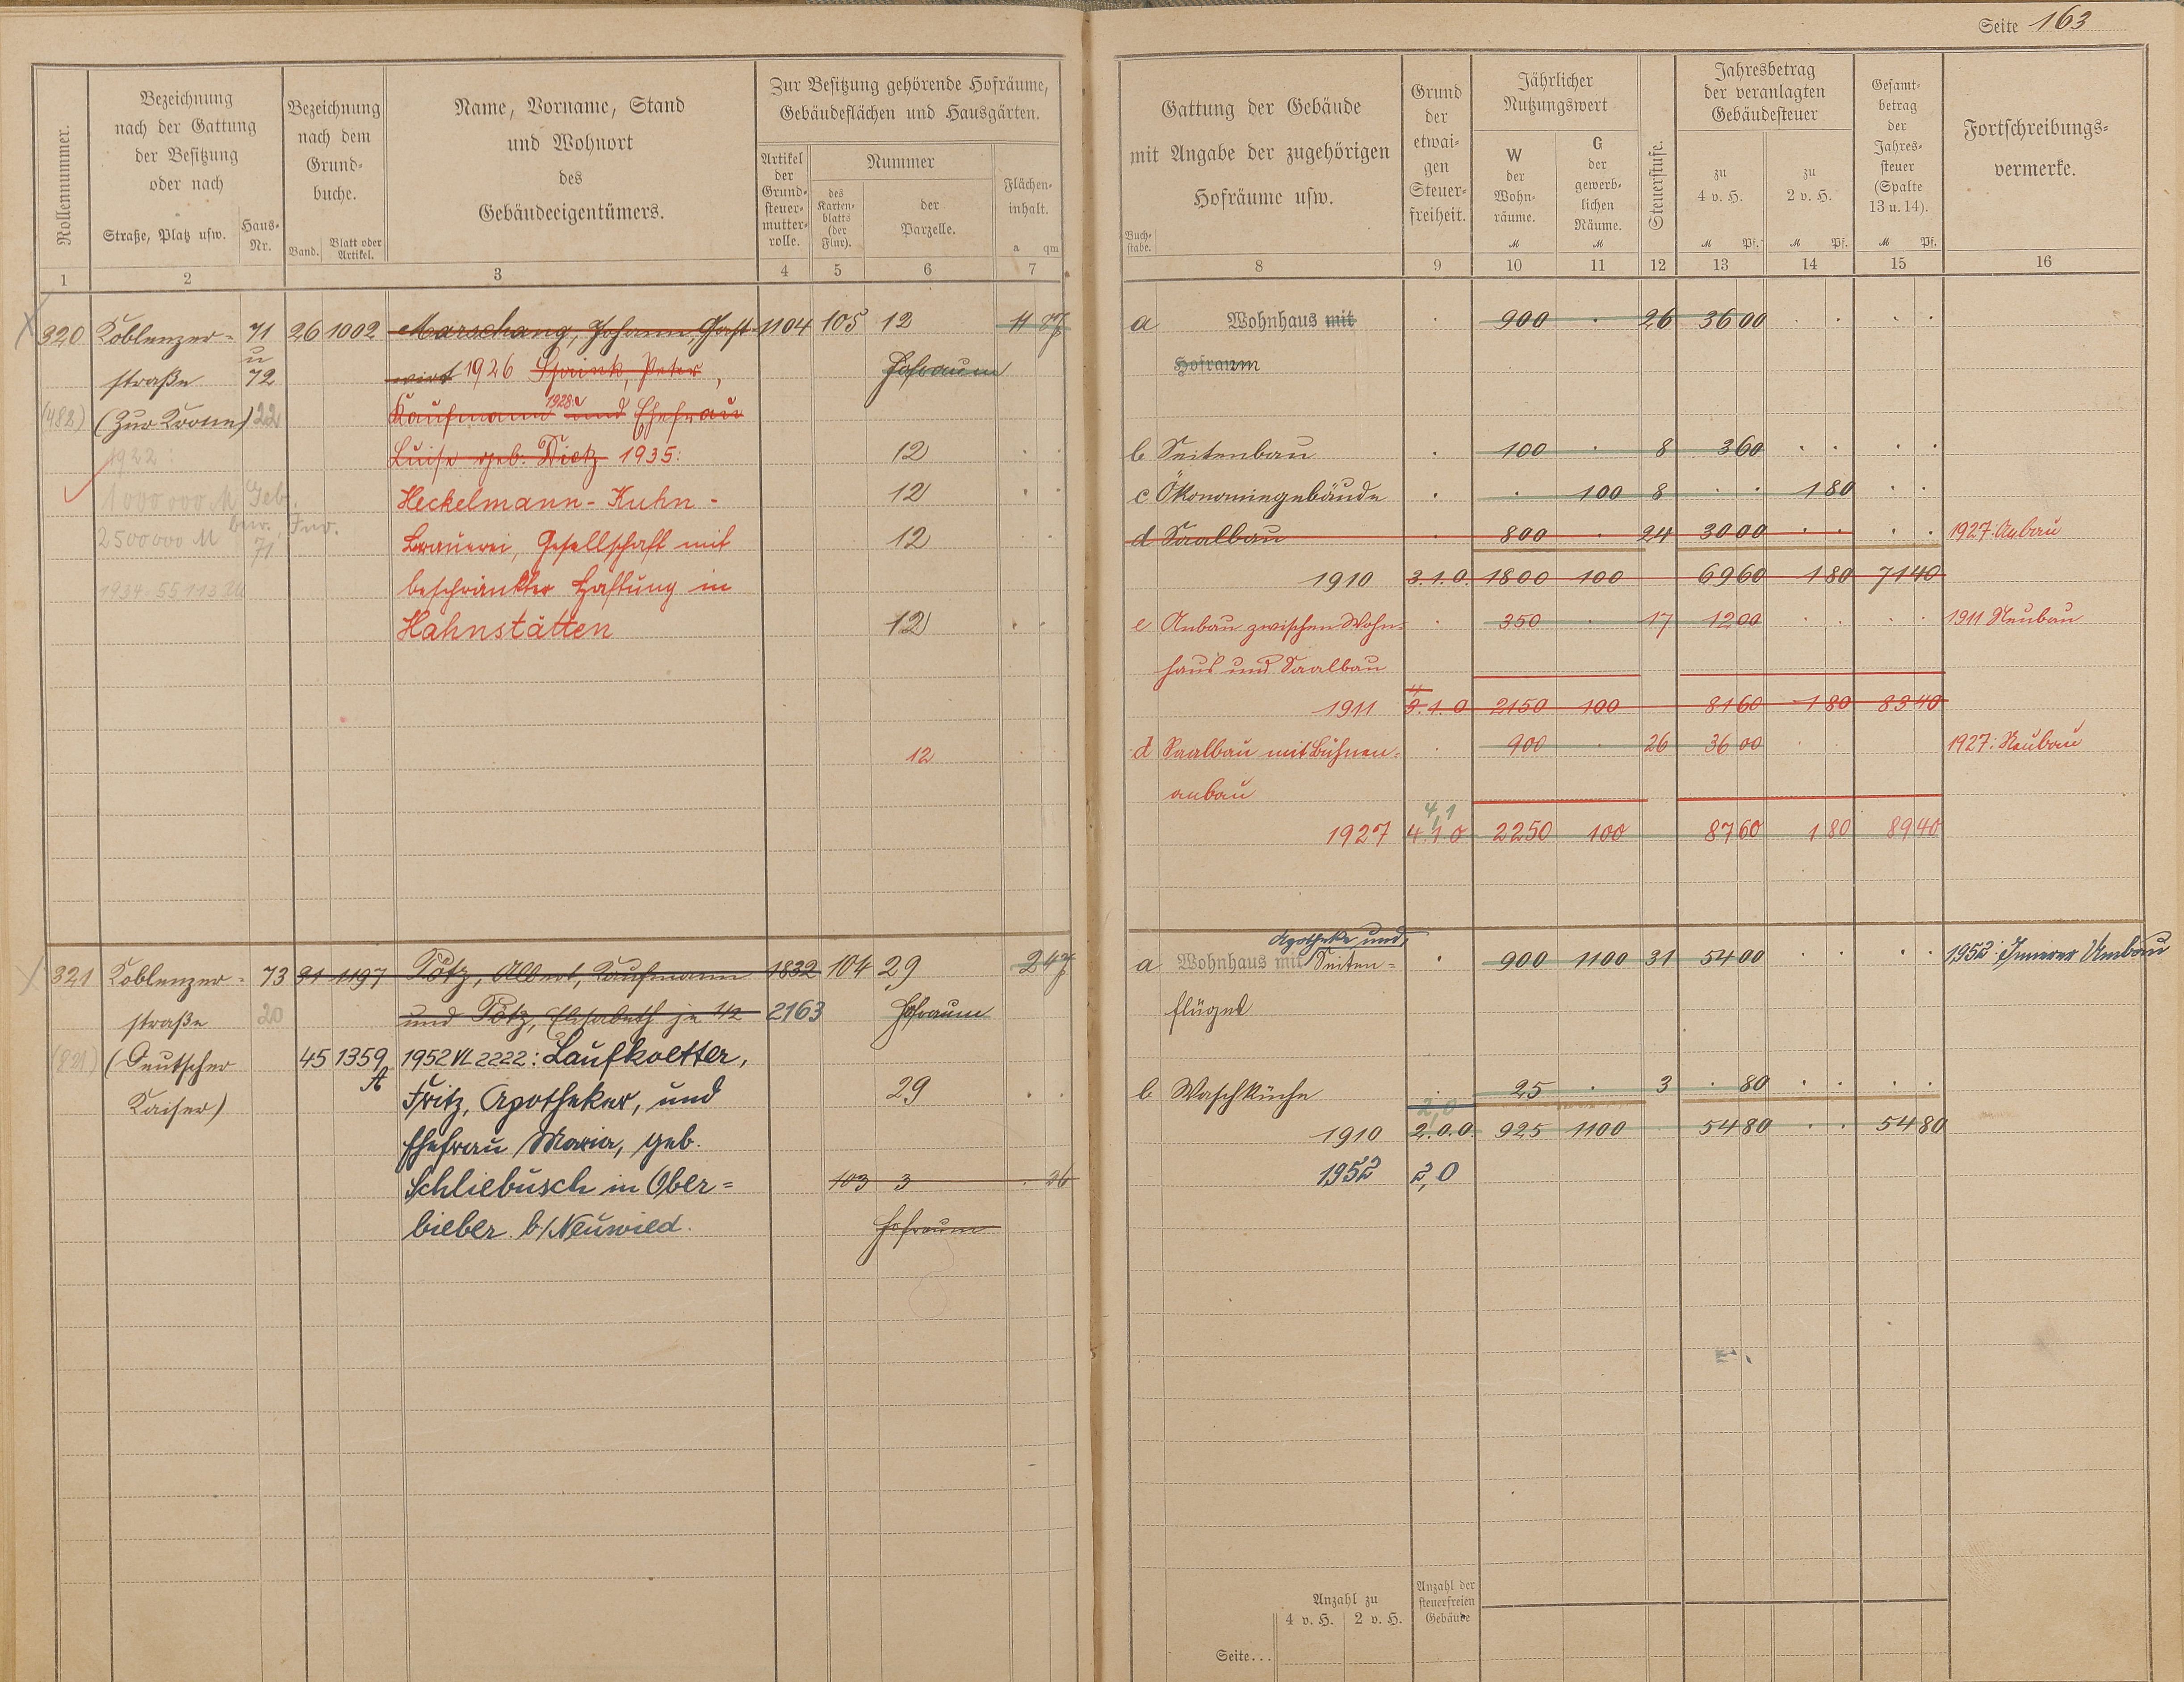 Seite 163
Rollennummer.
Bezeichnung
nach der Gattung
der Besitzung
oder nach
Straße, Platz usw.
Haus-
Nr.
Bezeichnung
nach dem
Grund-
buche.
Band.
Blatt oder
Artikel.
Name, Vorname, Stand
und Wohnort
des
Gebäudeeigentümers.
Zur Besitzung gehörende Hofräume,
Gebäudeflächen und Hausgärten.
Artikel
der
Grund-
steuer-
mutter-
rolle.
Nummer
des
Karten-
blatts
(der
Flur).
der
Parzelle.
Flächen-
inhalt.
a qm
1 2 3 4 5 6 7
Gattung der Gebäude
mit Angabe der zugehörigen
Hofräume usw.
Buch-
stabe.
Grund
der
etwai-
gen
Steuer-
freiheit.
Jährlicher
Nutzungswert
W
der
Wohn-
räume.
M
G
der
gewerb-
lichen
Räume.
M
Steuerstufe.
Jahresbetrag
der veranlagten
Gebäudesteuer
zu
4 v. H.
M Pf.
zu
2 v. H.
M Pf.
Gesamt-
betrag
der
Jahres-
steuer
(Spalte
13 u. 14).
M Pf.
Fortschreibungs-
vermerke.
8 9 10 11 12 13 14 15 16
320 Koblenzer- 71 26 1002 Marschang, Johann, Gast- 1104 105 12 11 87
u
straße 72 wirt 1926 Spink, Peter, Hofraum
(482) (Zur Krone) 22 Kaufmann 1928: und Ehefrau
1922: Luise geb. Dietz 1935: 12
1000000 M Geb. Heckelmann-Kuhn- 12
2500000 M bew. Inv. 71 Brauerei, Gesellschaft mit 12
1934. 55113 beschränkter Haftung in
Hahnstätten 12
12
a Wohnhaus mit 900 26 36 00
Hofraum
b Seitenbau 100 8 3 60
c Ökonomiegebäude 100 8 1 80
d Saalbau 800 24 30 00 1927: Anbau
1910 3.1.0. 1800 100 69 60 1 80 71 40
e Anbau zwischen Wohn- 350 17 12 00 1911 Neubau
haus und Saalbau
4
1911 3.1.0 2150 100 81 60 1 80 83 40
d Saalbau mit Bühnen- 900 26 36 00 1927: Neubau
anbau
4,1
1927 4.1.0 2250 100 87 60 1 80 89 40
321 Koblenzer- 73 91 1197 Pötz, Albert, Kaufmann 1832 104 29 2 47
straße 20 und Pötz, Elisabeth je 1/2 2163 Hofraum
(821) (Deutscher 45 1359 1952 VI 2222: Laufkoetter,
A
Kaiser) Fritz, Apotheker, und 29
Ehefrau Maria, geb.
Schliebusch in Ober- 103 3 36
bieber b./Neuwied. Hofraum
Apotheke und
a Wohnhaus mit Seiten- 900 1100 31 54 00 1952: Innerer Umbau
flügel
b Waschküche 25 3 80
2,0
1910 2.0.0. 925 1100 54 80 54 80
1952 2,0
Anzahl zu
4 v. H. 2 v. H.
Anzahl der
steuerfreien
Gebäude
Seite...